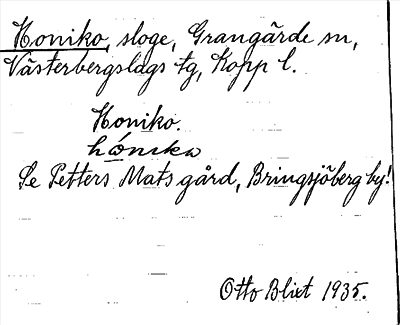 Honiko, sloge, Grangärde sn,
Västerbergslags tg, Kopp l.
Honiko.
hónika
Se Petters Mats gård, Bringsjöberg by!
Otto Blixt 1935.